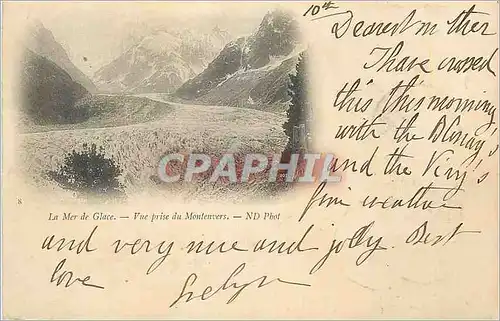 10th
Dearest mother
I have crossed
this this morning
with the Blonay's
and the Very's
fine weather
CPAPHIL.COM
8
La Mer de Glace. — Vue prise du Montenvers. — ND Phot
and very nice and jolly. Best
love Evelyn